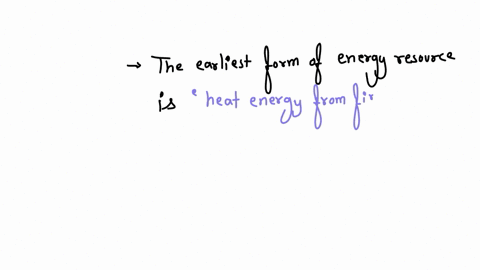 → The earliest form of energy resource
is ‘ heat energy from fir